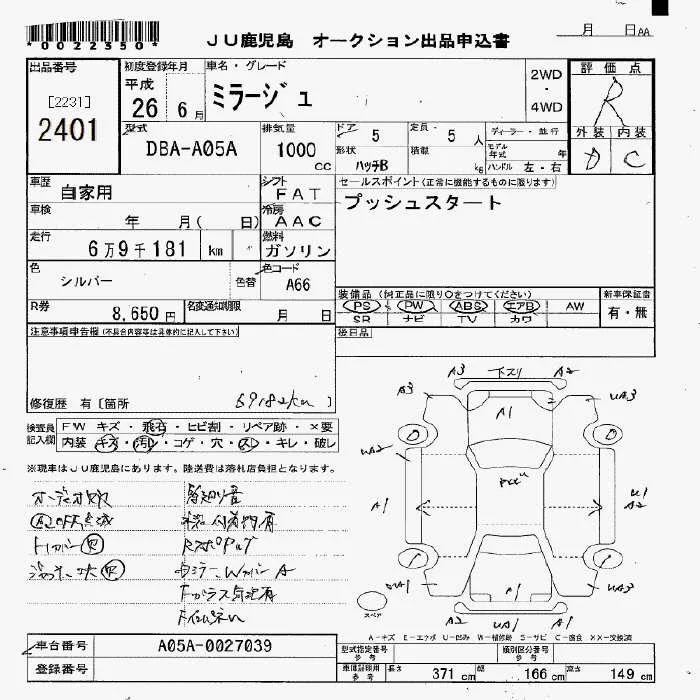 *0022350*
JU鹿児島 オークション出品申込書
月 日AA
出品番号
[2231]
2401
初度登録年月
平成
26 6月
車名・グレード
ミラージュ
2WD
・
4WD
評価点
R
外装 内装
D C
型式
DBA-A05A
排気量
1000
cc
ドア 5
形状 ハッチB
定員 5 人
積載 kg
ディーラー・並行
モデル年式 年
ハンドル 左・右
車歴
自家用
シフト
FAT
セールスポイント(正常に機能するものに限ります)
プッシュスタート
車検
年 月( 日)
冷房
AAC
走行
6万9千181 km
燃料
ガソリン
色
シルバー
色替
色コード
A66
R券
8,650円
名変通知期限
月 日
装備品(純正品に限り○をつけてください)
PS PW ABS エアB AW
SR ナビ TV カワ
新車保証書
有・無
後日品
注意事項申告欄(不具合内容等は具体的に記入して下さい)
修復歴 有[箇所 ]
69182km
検査員記入欄
FW キズ・飛石・ヒビ割・リペア跡・×要
内装・キズ・汚れ・コゲ・穴・スレ・キレ・破レ
※現車はJU鹿児島にあります。陸送費は落札店負担となります。
A3 下スリ A2
A3 A1 UA3
UA2
A1
U1
A2
UA1 UA3
スペア
A2 UA1 A1
A-キズ E-エクボ U-凹み W-補修跡 S-サビ C-腐食 XX-交換済
車台番号
A05A-0027039
登録番号
型式指定番号 参考
類別区分番号 参考
車庫証明用 参考
長さ 371 cm 幅 166 cm 高さ 149 cm